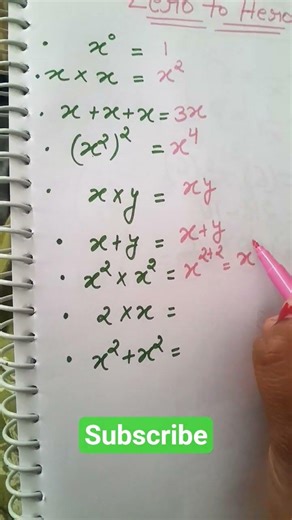 Zero to Hero
• x° = 1
• x × x = x²
• x + x + x = 3x
• (x²)² = x⁴
x × y = xy
• x + y = x + y
• x² × x² = x²⁺² = x
• 2 × x =
• x² + x² =
Subscribe